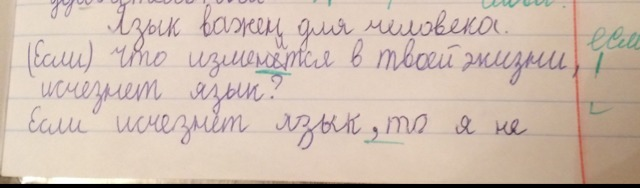 Язык важен для человека.
(Если) что изменется в твоей жизни, если
исчезнет язык?
Если исчезнет язык, то я не